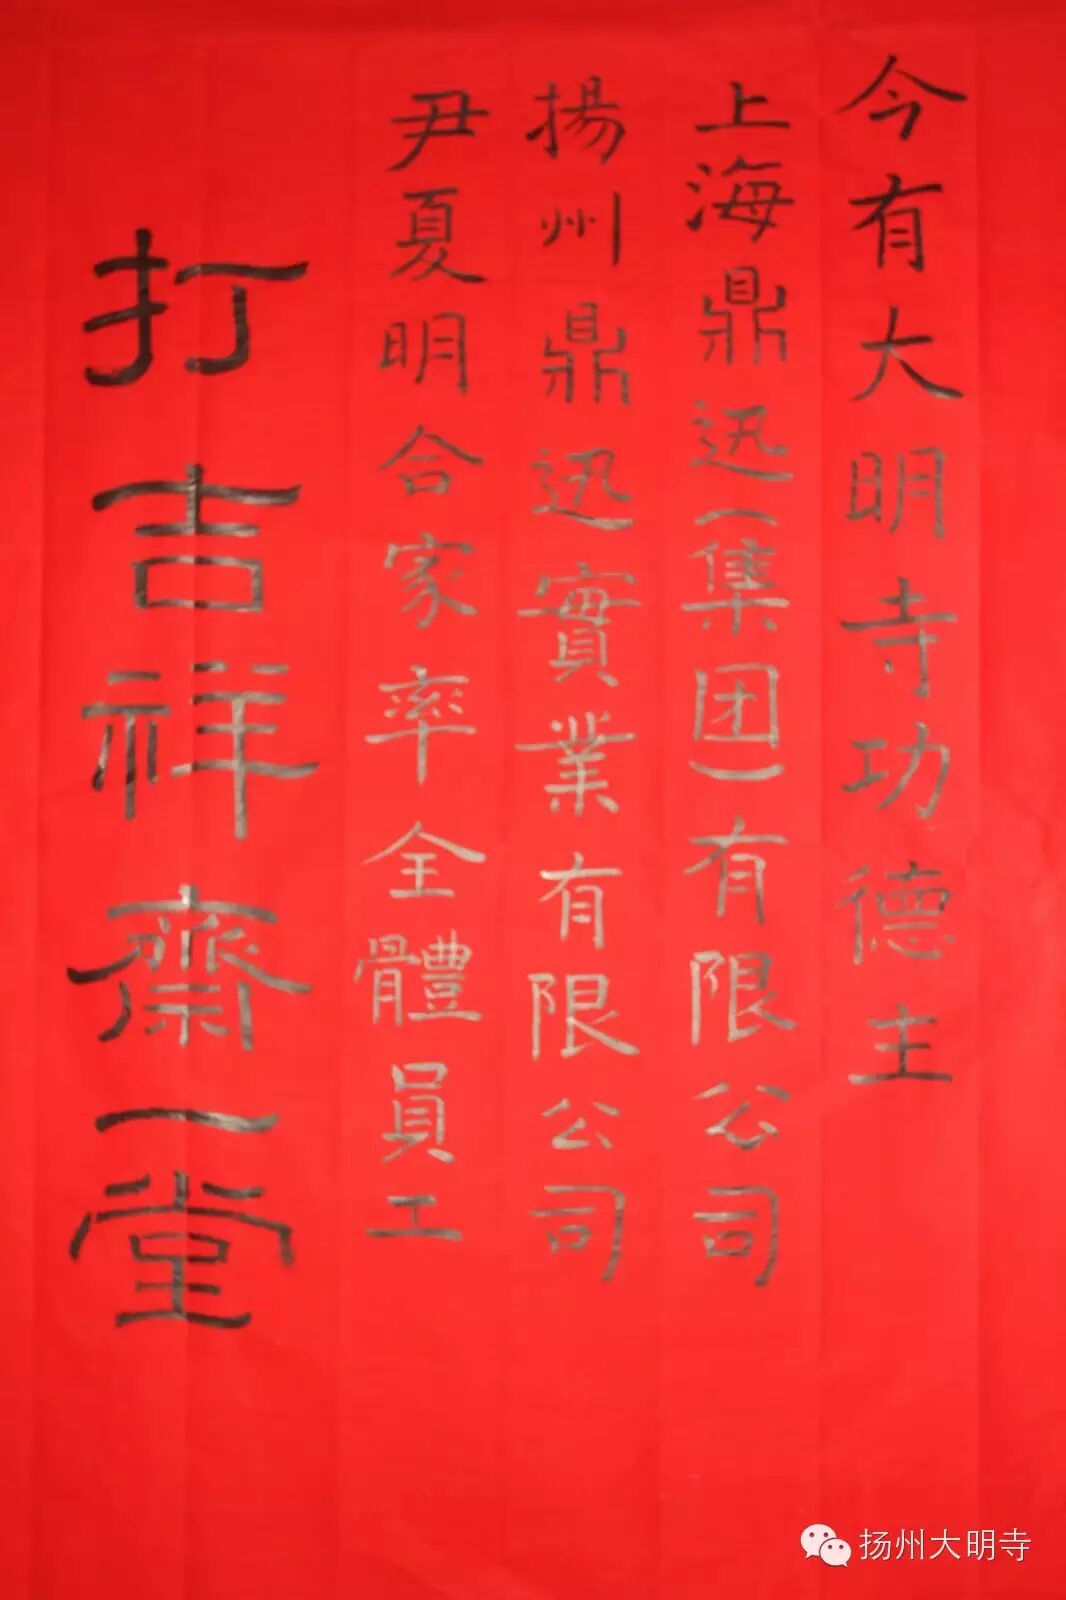 今有大明寺功德主
上海鼎迅(集团)有限公司
揚州鼎迅實業有限公司
尹夏明合家率全體員工
打吉祥齋一堂
扬州大明寺